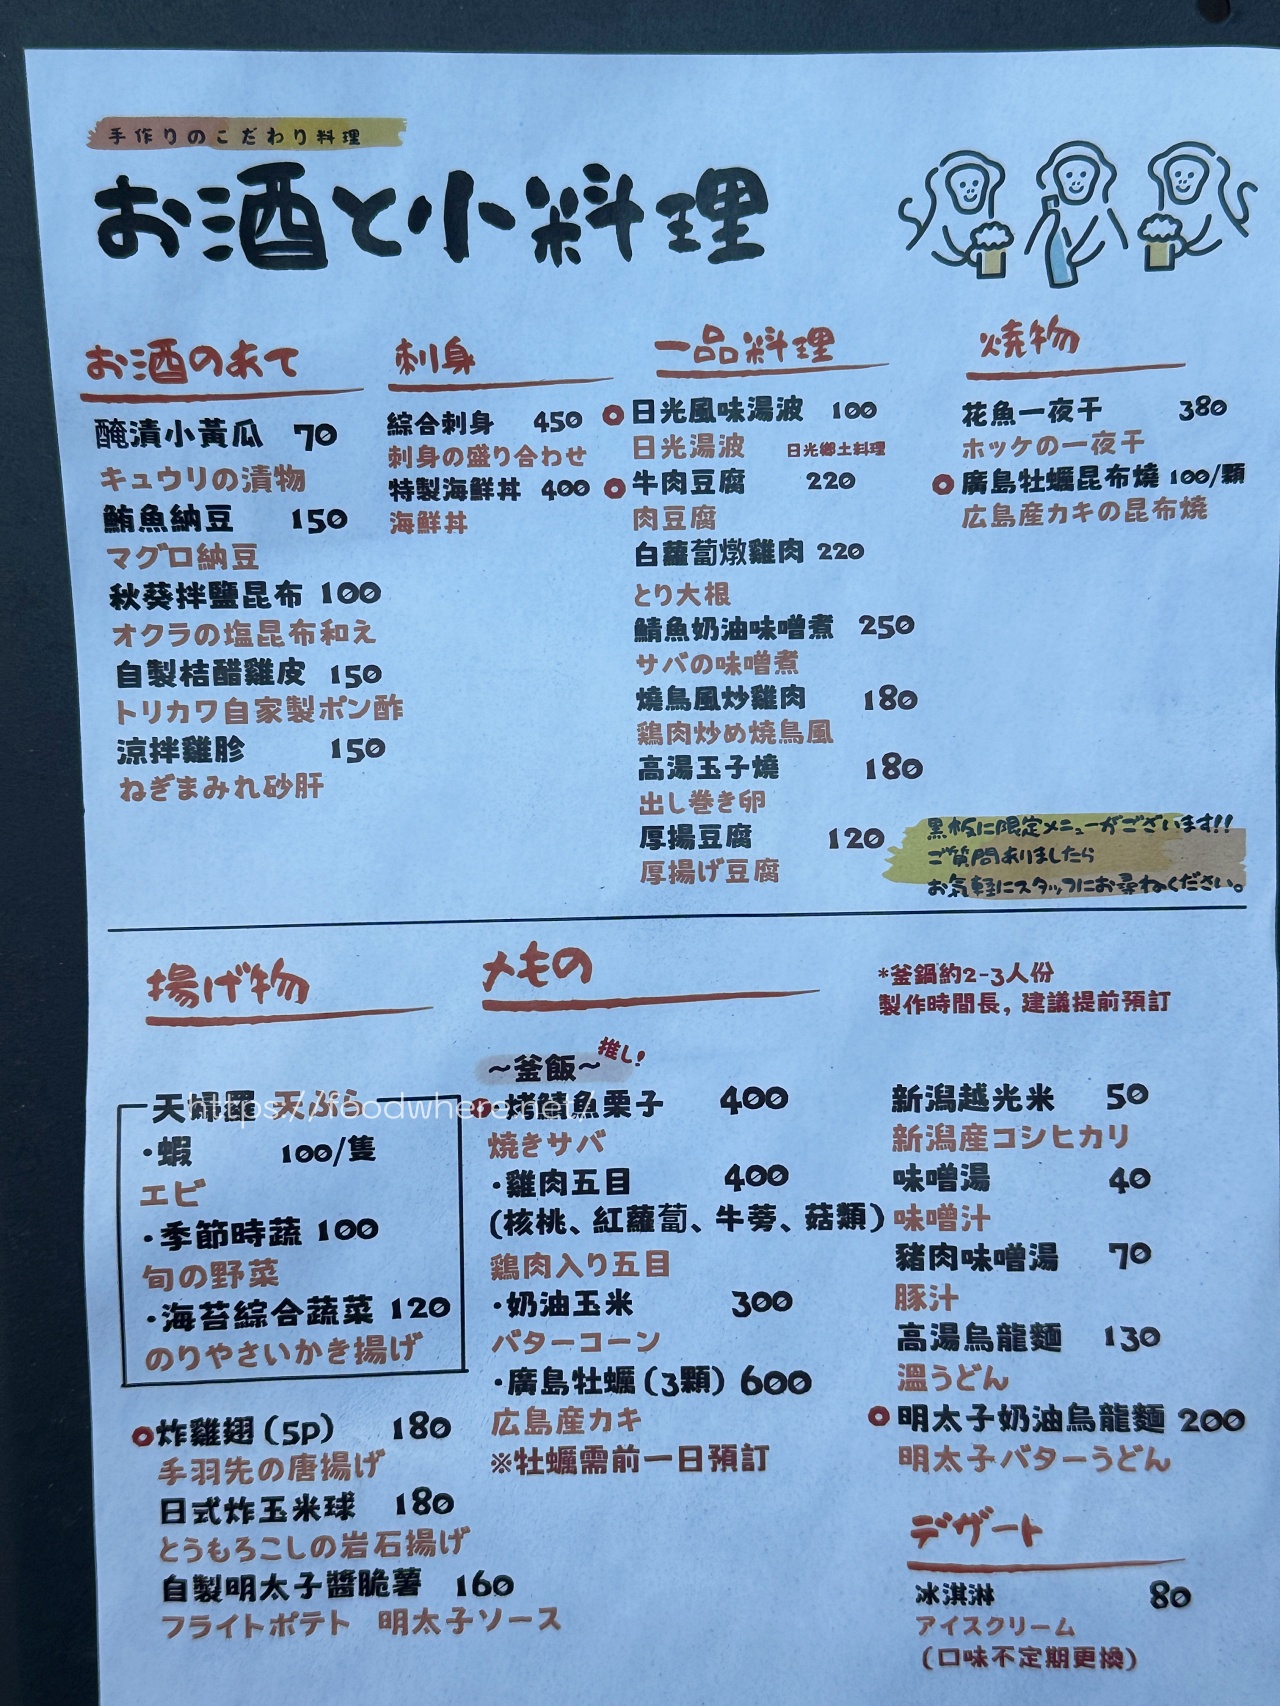 手作りのこだわり料理
お酒と小料理
お酒のあて
醃漬小黃瓜 70
キュウリの漬物
鮪魚納豆 150
マグロ納豆
秋葵拌鹽昆布 100
オクラの塩昆布和え
自製桔醋雞皮 150
トリカワ自家製ポン酢
涼拌雞胗 150
ねぎまみれ砂肝
刺身
綜合刺身 450
刺身の盛り合わせ
特製海鮮丼 400
海鮮丼
一品料理
日光風味湯波 100
日光湯波 日光郷土料理
牛肉豆腐 220
肉豆腐
白蘿蔔燉雞肉 220
とり大根
鯖魚奶油味噌煮 250
サバの味噌煮
燒鳥風炒雞肉 180
鶏肉炒め焼鳥風
高湯玉子燒 180
出し巻き卵
厚揚豆腐 120
厚揚げ豆腐
焼物
花魚一夜干 380
ホッケの一夜干
廣島牡蠣昆布燒 100/顆
広島産カキの昆布焼
黒板に限定メニューがございます!!
ご質問ありましたら
お気軽にスタッフにお尋ねください。
揚げ物
天婦羅 天ぷら
・蝦 100/隻
エビ
・季節時蔬 100
旬の野菜
・海苔綜合蔬菜 120
のりやさいかき揚げ
炸雞翅(5P) 180
手羽先の唐揚げ
日式炸玉米球 180
とうもろこしの岩石揚げ
自製明太子醬脆薯 160
フライトポテト 明太子ソース
〆もの
～釜飯～ 推し!
烤鯖魚栗子 400
焼きサバ
・雞肉五目 400
(核桃、紅蘿蔔、牛蒡、菇類)
鶏肉入り五目
・奶油玉米 300
バターコーン
・廣島牡蠣(3顆) 600
広島産カキ
※牡蠣需前一日預訂
*釜鍋約2-3人份
製作時間長，建議提前預訂
新潟越光米 50
新潟産コシヒカリ
味噌湯 40
味噌汁
豬肉味噌湯 70
豚汁
高湯烏龍麵 130
溫うどん
明太子奶油烏龍麵 200
明太子バターうどん
デザート
冰淇淋 80
アイスクリーム
(口味不定期更換)
https://foodwhere.net/